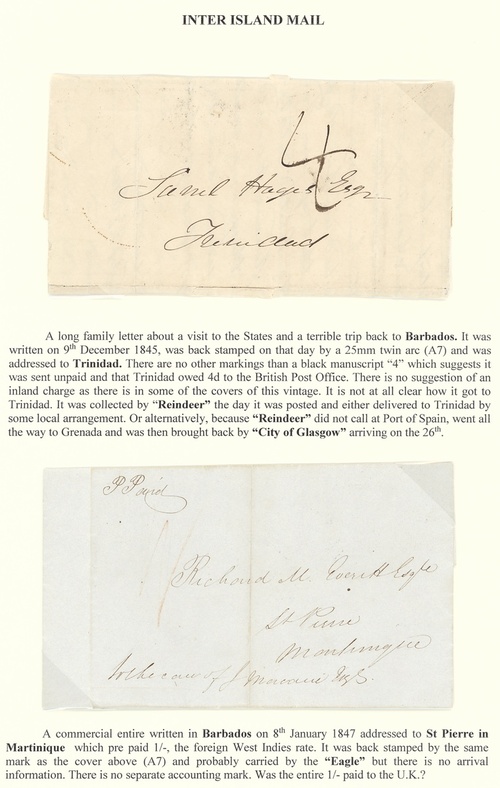 INTER ISLAND MAIL
4
Saml Hages Esqr
Trinidad
A long family letter about a visit to the States and a terrible trip back to Barbados. It was
written on 9th December 1845, was back stamped on that day by a 25mm twin arc (A7) and was
addressed to Trinidad. There are no other markings than a black manuscript “4” which suggests it
was sent unpaid and that Trinidad owed 4d to the British Post Office. There is no suggestion of an
inland charge as there is in some of the covers of this vintage. It is not at all clear how it got to
Trinidad. It was collected by “Reindeer” the day it was posted and either delivered to Trinidad by
some local arrangement. Or alternatively, because “Reindeer” did not call at Port of Spain, went all
the way to Grenada and was then brought back by “City of Glasgow” arriving on the 26th.
P Paid
1/
Richard M. Everitt Esqre
St Pierre
Martinique
to the care of J Esqr.
A commercial entire written in Barbados on 8th January 1847 addressed to St Pierre in
Martinique which pre paid 1/-, the foreign West Indies rate. It was back stamped by the same
mark as the cover above (A7) and probably carried by the “Eagle” but there is no arrival
information. There is no separate accounting mark. Was the entire 1/- paid to the U.K.?